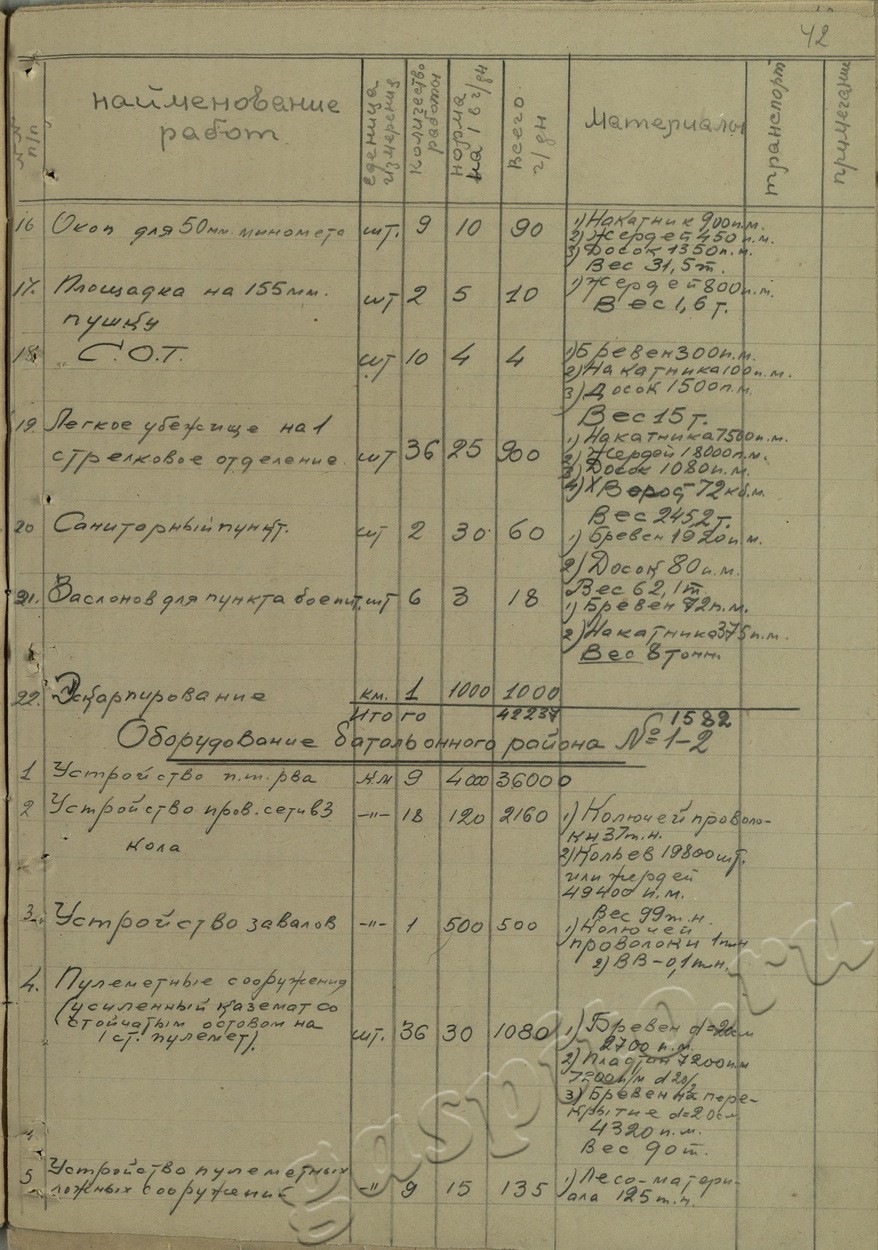 42
№№ п/п
наименование работ
еденица измерения
количество работы
норма на 1 в ч/дн
всего ч/дн
материалы
транспорт
примечание
16 Окоп для 50мм. миномета шт. 9 10 90
1) Накатник 900п.м.
2) Жердей 450п.м.
3) Досок 1350п.м.
Вес 31,5т.
17. Площадка на 155мм. шт 2 5 10
пушку
1) Жердей 800п.м.
Вес 1,6т.
18. С.О.Т. шт 10 4 4
1) Бревен 300п.м.
2) Накатника 100п.м.
3) Досок 1500п.м.
Вес 15т.
19. Легкое убежище на 1
стрелковое отделение шт 36 25 900
1) Накатника 7500п.м.
2) Жердей 18000п.м.
3) Досок 1080п.м.
4) Хворост 72кб.м.
Вес 2452т.
20 Саниторный пункт. шт 2 30 60
1) Бревен 1920п.м.
2) Досок 80п.м.
Вес 62,1т.
21. Заслонов для пункта боепит. шт 6 3 18
1) Бревен 72п.м.
2) Накатника 375п.м.
Вес 8 тонн.
22. Эскарпирование км. 1 1000 1000
Итого 42237 1582
Оборудование батальонного района №1-2
1 Устройство п.т. рва км 9 4000 36000
2 Устройство пров. сети в 3 -"- 18 120 2160
кола
1) Колючей проволо-
ки 37т.н.
2) Кольев 19800шт.
или жердей
49400п.м.
Вес 99т.н.
3. Устройство завалов -"- 1 500 500
1) Колючей
проволоки 1т.н
2) ВВ-0,1т.н.
4. Пулеметные сооружения
(усиленный каземат со
стойчатым остовом на
1 ст. пулемет). шт. 36 30 1080
1) Бревен d=20см
2700п.м.
2) Пластин 7200п.м
7200п/м d 20/2
3) Бревен на пере-
крытие d=20см.
4320п.м.
Вес 90т.
5 Устройство пулеметных
ложных сооружений -"- 9 15 135
1) Лесо-матери-
ала 125т.н.
gaspiko.ru